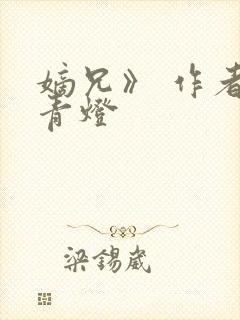 嫡兄》 作者
青燈
梁錫崴